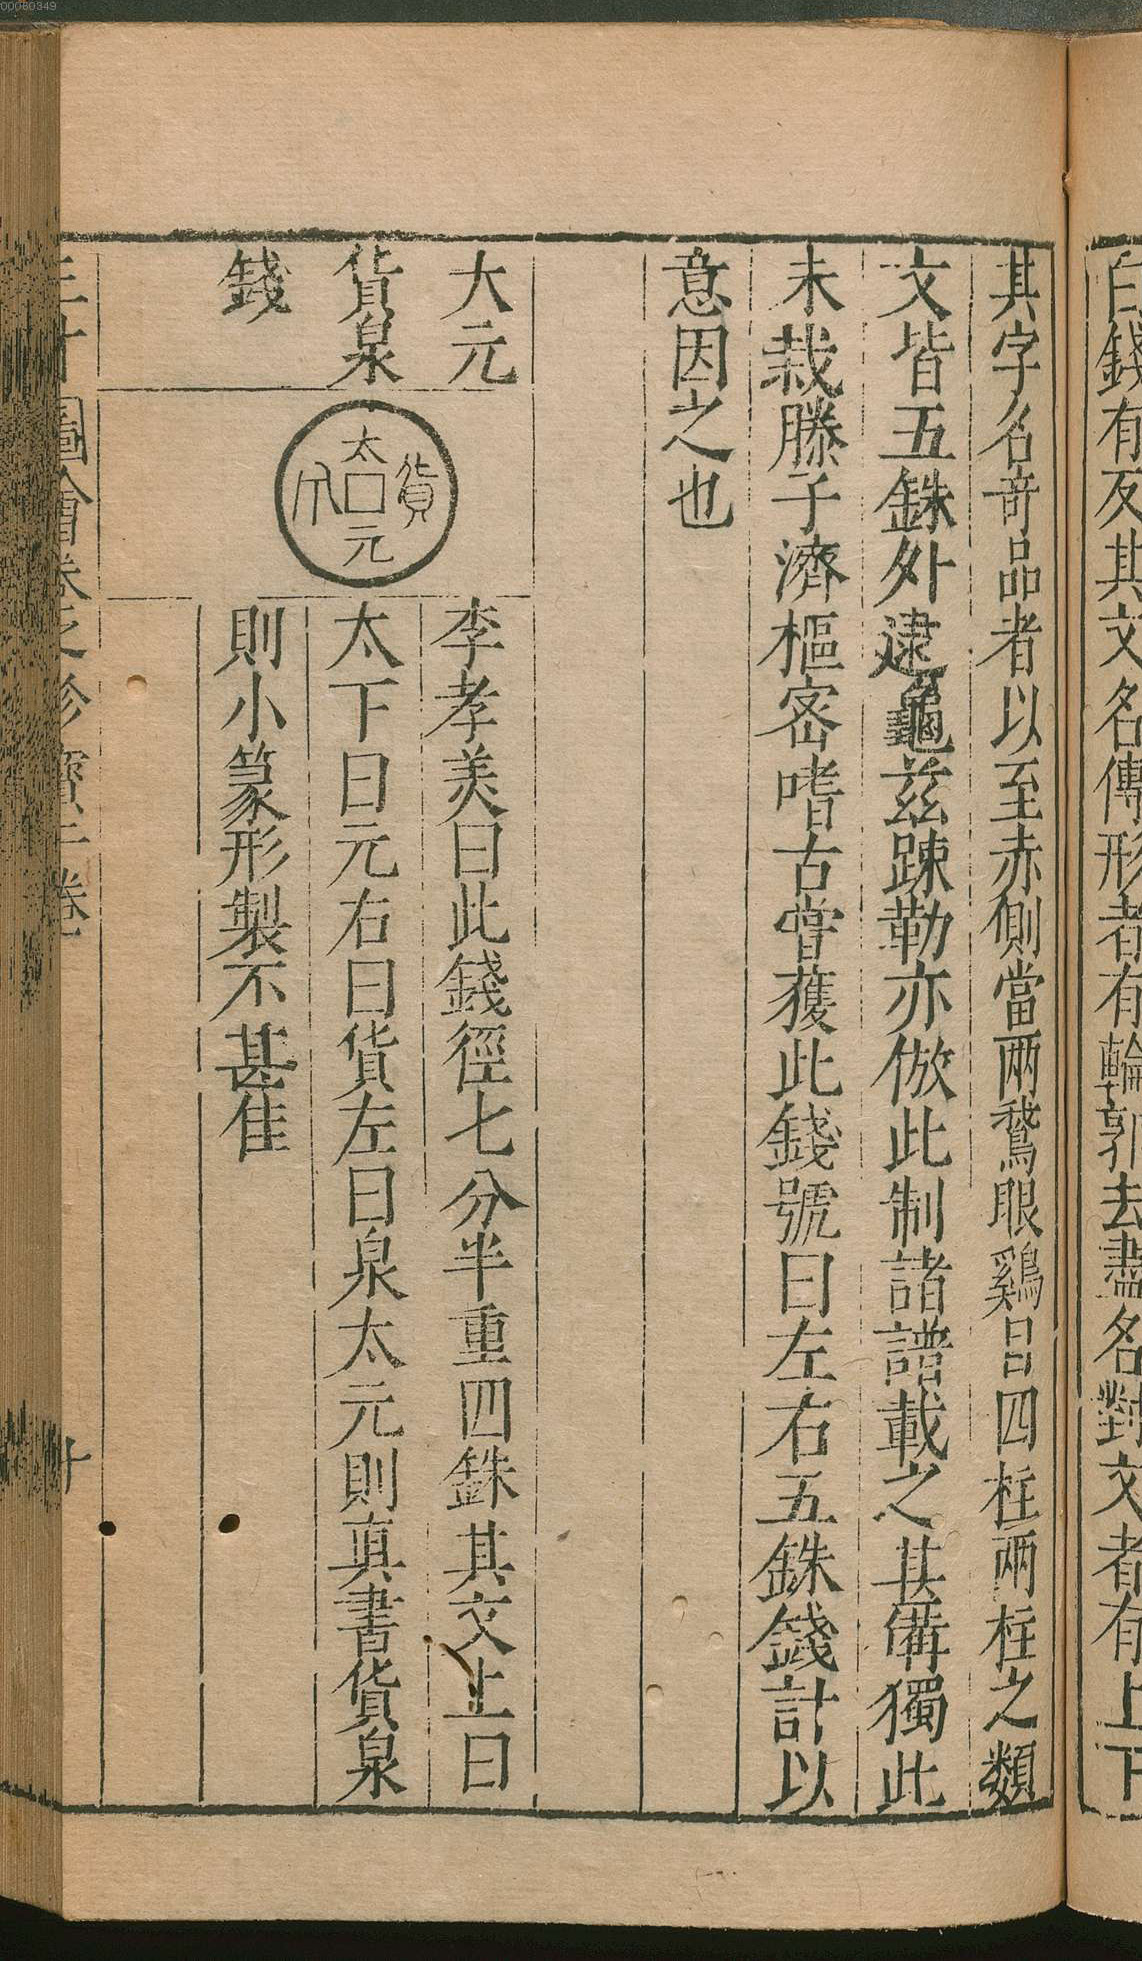 00080349
白錢有及其文名傳形者有輪郭去盡名對文者有上下
其字名竒品者以至赤側當兩鵞眼鷄目四柱兩柱之類
文皆五銖外逮龜兹踈勒亦倣此制諸譜載之甚備獨此
未栽滕子濟樞宻嗜古嘗獲此錢號曰左右五銖錢計以
意因之也
大元
貨泉
錢
太元貨泉
李孝美曰此錢徑七分半重四銖其文上曰
太下曰元右曰貨左曰泉太元則真書貨泉
則小篆形製不甚佳
三才圖會卷之珍寶二卷
十